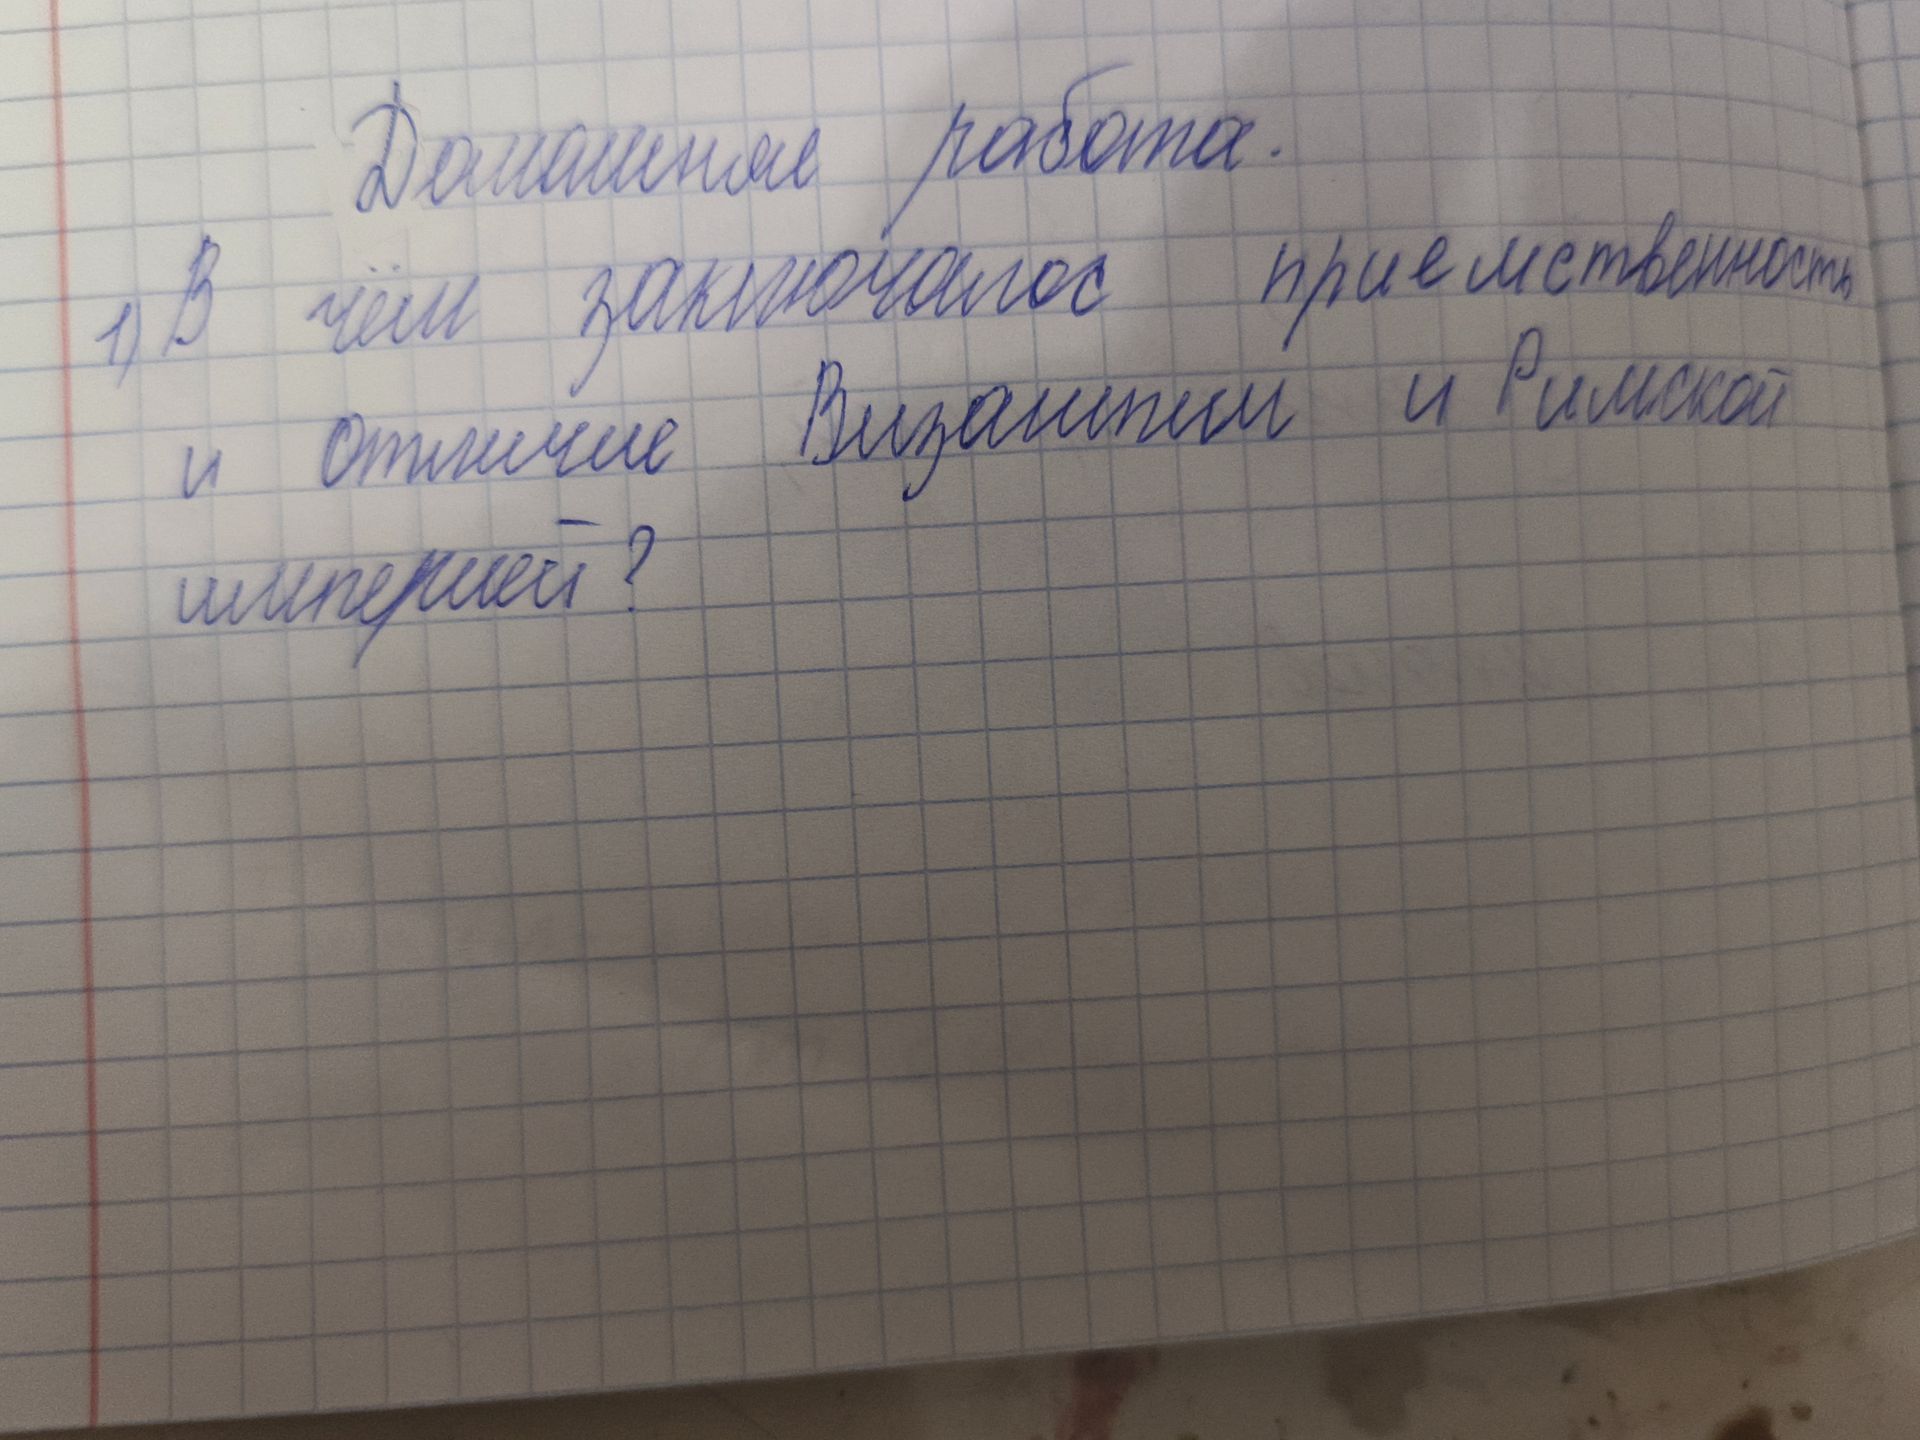 Домашняя работа.
1) В чём заключалос приемственность
и отличие Византии и Римской
империей?